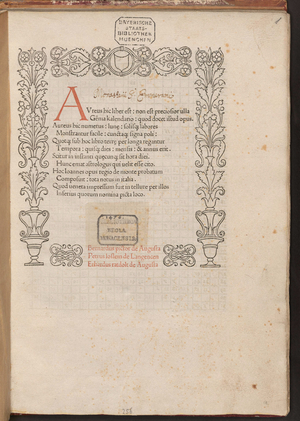 BAYERISCHE
STAATS-
BIBLIOTHEK
MUENCHEN
Aureus hic liber est: non est preciosior ulla
Gēma kalendario: quod docet istud opus.
Aureus hic numerus: lune: solisq; labores
Monstrantur facile: cunctaq; signa poli:
Quotq; sub hoc libro terre per longa regantur
Tempora: quisq; dies: mensis: & annus erit.
Scitur in instanti quęcunq; sit hora diei.
Hunc emat astrologus qui uelit esse cito.
Hoc Ioannes opus regio de monte probatum
Composuit: tota notus in italia.
Quod ueneta impressum fuit in tellure per illos
Inferius quorum nomina picta loco.
REGIA
MONACENSIS
Bernardus pictor de Augusta
Petrus loslein de Langencen
Erhardus ratdolt de Augusta